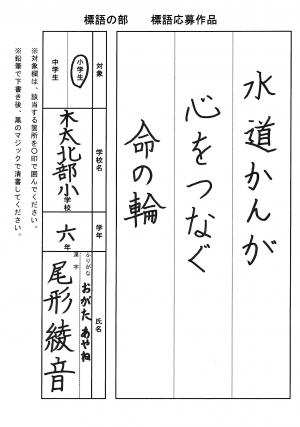 標語の部　標語応募作品
水道かんが
心をつなぐ
命の輪
対象
小学生
中学生
学校名
木太北部小学校
学年
六年
氏名
ふりがな
おがた あやね
漢字
尾形 綾音
※対象欄は、該当する箇所を〇印で囲んでください。
※鉛筆で下書き後、黒のマジックで清書してください。